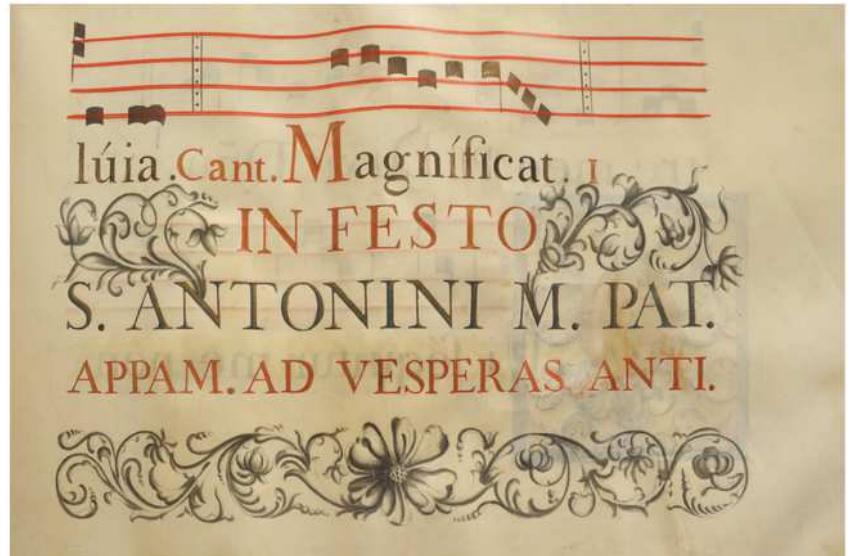 lúia. Cant. Magníficat. I
IN FESTO
S. ANTONINI M. PAT.
APPAM. AD VESPERAS ANTI.